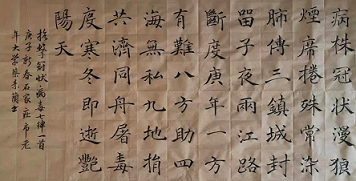 病株冠狀漫狼
煙席捲殊常染
肺傳三鎮城封
留子夜兩江路
斷度庚年一方
有難八方助四
海無私九地捐
共濟同舟屠毒
疫寒冬即逝艷
陽天
抗擊冠狀病毒七律一首
庚子新春石家莊市老
年大學蔡素蘭書